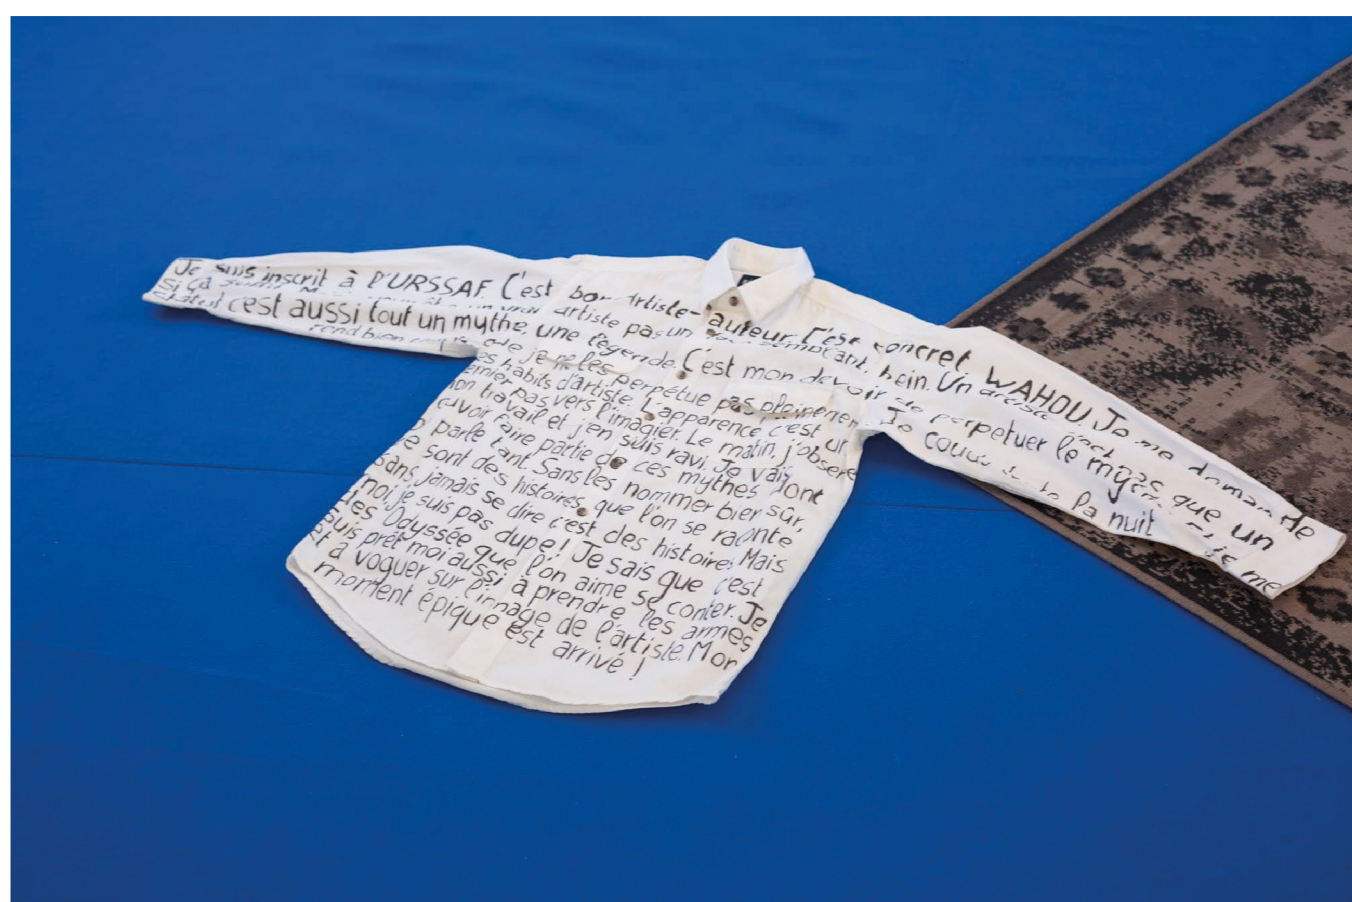 Je suis inscrit à l'URSSAF. C'est bon. Artiste-auteur. C'est concret. WAHOU. Je me demande
si ça artiste pas un hein. Un
statut c'est aussi tout un mythe, une légende. C'est mon devoir de perpetuer le que un
rend bien que je ne les perpétue pas pleinement. Je la nuit je me
habits d'artiste. L'apparence c'est un
pas vers l'imagier. Le matin, j'observe
mon travail et j'en suis ravi. Je vais
faire partie de ces mythes dont
parle tant. Sans les nommer bien sûr,
sont des histoires que l'on se raconte
sans jamais se dire c'est des histoires. Mais
moi, je suis pas dupe ! Je sais que c'est
des Odyssée que l'on aime se conter. Je
suis prêt moi aussi à prendre les armes
et à voguer sur l'image de l'artiste. Mon
moment épique est arrivé !